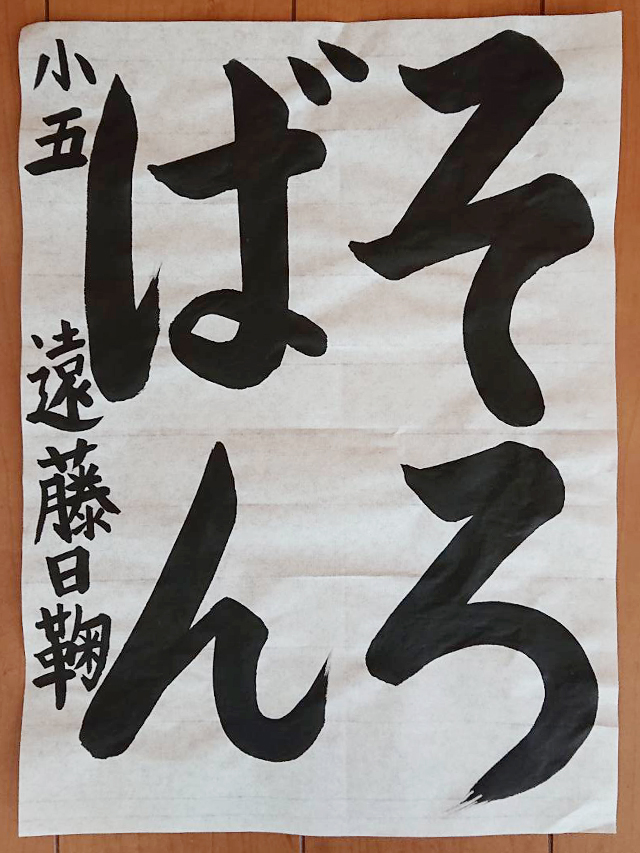 そろ
ばん
小五 遠藤日鞠